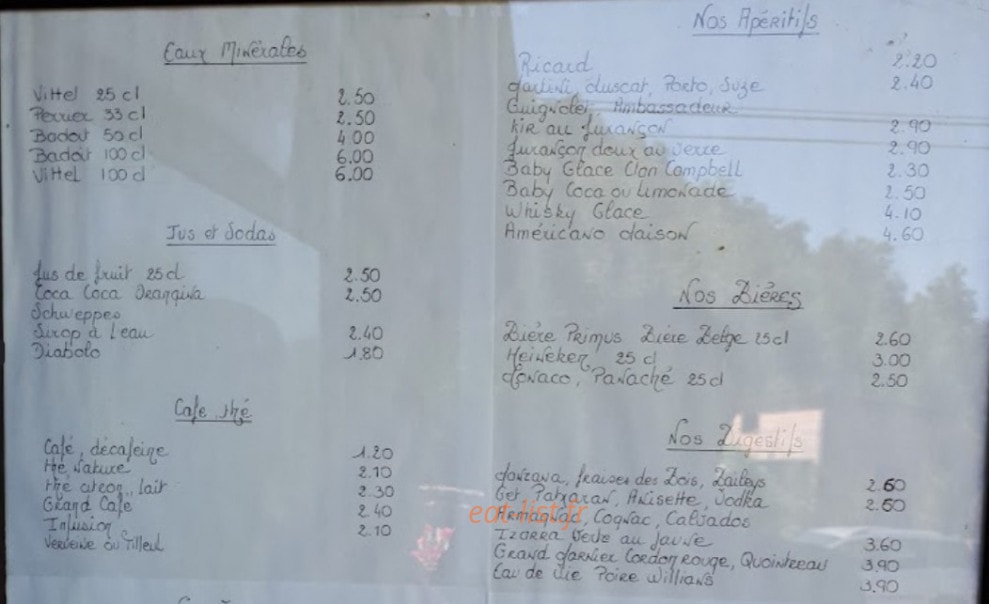 Eaux Minérales
Vittel 25 cl 2.50
Perrier 33 cl 2.50
Badoit 50 cl 4.00
Badoit 100 cl 6.00
Vittel 100 cl 6.00
Jus et Sodas
Jus de fruit 25 cl 2.50
Coca Coca Orangina 2.50
Schweppes
Sirop à l'eau 2.40
Diabolo 1.80
Cafe thé
Café, décafeine 1.20
thé Nature 2.10
thé citron, lait 2.30
Grand Café 2.40
Infusion 2.10
Verveine ou Tilleul
Nos Apéritifs
Ricard 2.20
Martini, Muscat, Porto, Suze 2.40
Guignolet Ambassadeur
Kir au Jurançon 2.90
Jurançon doux au verre 2.90
Baby Glace Clan Campbell 2.30
Baby Coca ou Limonade 2.50
Whisky Glace 4.10
Américano Maison 4.60
Nos Bières
Bière Primus Bière Belge 25cl 2.60
Heineken 25 cl 3.00
Monaco, Panaché 25 cl 2.50
Nos Digestifs
Manzana, fraises des Bois, Baileys 2.60
Get Patxaran, Anisette, Vodka 2.60
Armagnac, Cognac, Calvados
Izarra Verte ou Jaune 3.60
Grand Marnier Cordon rouge, Quointreau 3.90
Eau de vie Poire Willians 3.90
eat-list.fr